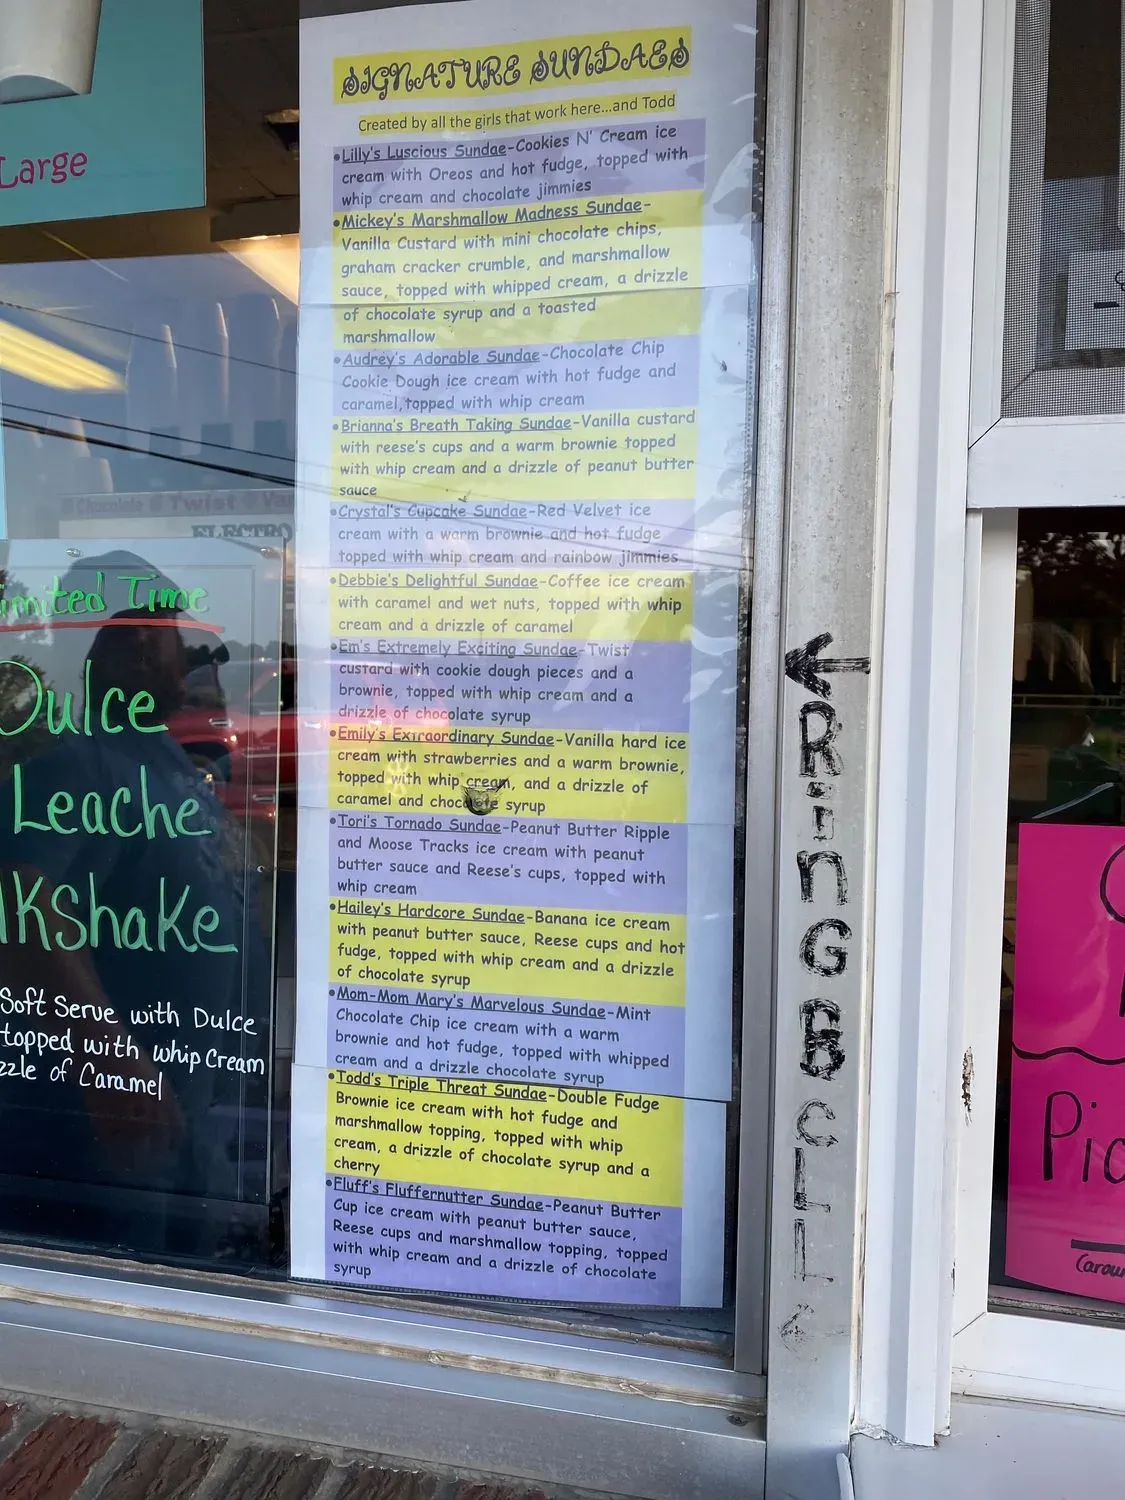 Large
SIGNATURE SUNDAES
Created by all the girls that work here...and Todd
•Lilly's Luscious Sundae-Cookies N' Cream ice
cream with Oreos and hot fudge, topped with
whip cream and chocolate jimmies
•Mickey's Marshmallow Madness Sundae-
Vanilla Custard with mini chocolate chips,
graham cracker crumble, and marshmallow
sauce, topped with whipped cream, a drizzle
of chocolate syrup and a toasted
marshmallow
•Audrey's Adorable Sundae-Chocolate Chip
Cookie Dough ice cream with hot fudge and
caramel,topped with whip cream
•Brianna's Breath Taking Sundae-Vanilla custard
with reese's cups and a warm brownie topped
with whip cream and a drizzle of peanut butter
sauce
•Crystal's Cupcake Sundae-Red Velvet ice
cream with a warm brownie and hot fudge
topped with whip cream and rainbow jimmies
•Debbie's Delightful Sundae-Coffee ice cream
with caramel and wet nuts, topped with whip
cream and a drizzle of caramel
•Em's Extremely Exciting Sundae-Twist
custard with cookie dough pieces and a
brownie, topped with whip cream and a
drizzle of chocolate syrup
•Emily's Extraordinary Sundae-Vanilla hard ice
cream with strawberries and a warm brownie,
topped with whip cream, and a drizzle of
caramel and chocolate syrup
•Tori's Tornado Sundae-Peanut Butter Ripple
and Moose Tracks ice cream with peanut
butter sauce and Reese's cups, topped with
whip cream
•Hailey's Hardcore Sundae-Banana ice cream
with peanut butter sauce, Reese cups and hot
fudge, topped with whip cream and a drizzle
of chocolate syrup
•Mom-Mom Mary's Marvelous Sundae-Mint
Chocolate Chip ice cream with a warm
brownie and hot fudge, topped with whipped
cream and a drizzle chocolate syrup
•Todd's Triple Threat Sundae-Double Fudge
Brownie ice cream with hot fudge and
marshmallow topping, topped with whip
cream, a drizzle of chocolate syrup and a
cherry
•Fluff's Fluffernutter Sundae-Peanut Butter
Cup ice cream with peanut butter sauce,
Reese cups and marshmallow topping, topped
with whip cream and a drizzle of chocolate
syrup
Chocolate Twist Van
ELECTRO
imited Time
Dulce
Leache
lkshake
Soft Serve with Dulce
topped with whip cream
zzle of Caramel
← RinG BELL
Pic